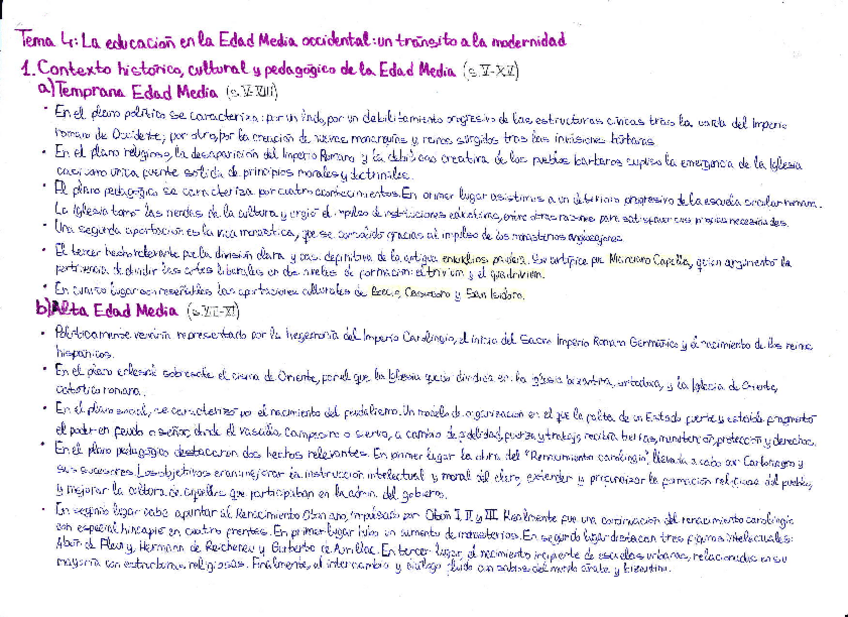 Tema 4: La educación en la Edad Media occidental: un tránsito a la modernidad
1. Contexto histórico, cultural y pedagógico de la Edad Media (s.V-XV)
a) Temprana Edad Media (s.V-VIII)
· En el plano político se caracteriza: por un lado, por un debilitamiento progresivo de las estructuras cívicas tras la caída del Imperio
romano de Occidente; por otro, por la creación de nuevas monarquías y reinos surgidos tras las invasiones bárbaras.
· En el plano religioso, la desaparición del Imperio Romano y la debilidad creativa de los pueblos bárbaros supuso la emergencia de la Iglesia
como única fuente sólida de principios morales y doctrinales.
· El plano pedagógico se caracteriza por cuatro acontecimientos. En primer lugar asistimos a un deterioro progresivo de la escuela secular romana.
La Iglesia tomó las riendas de la cultura y surgió el impulso de instituciones educativas, entre otras razones para satisfacer sus propias necesidades.
· Una segunda aportación es la vida monástica, que se consolidó gracias al impulso de los monasterios anglosajones.
· El tercer hecho relevante fue la división clara y casi definitiva de la antigua enkuklios paideia. Su artífice fue Marciano Capella, quien argumentó la
pertinencia de dividir las artes liberales en dos niveles de formación: el trivium y el quadrivium.
· En cuarto lugar son reseñables las aportaciones culturales de Boecio, Casiodoro y San Isidoro.
b) Alta Edad Media (s.VIII-XI)
· Políticamente vendría representado por la hegemonía del Imperio Carolingio, el inicio del Sacro Imperio Romano Germánico y el nacimiento de los reinos
hispánicos.
· En el plano eclesial sobresale el cisma de Oriente, por el que la Iglesia quedó dividida en: la iglesia bizantina, ortodoxa, y la Iglesia de Oriente,
católico romana.
· En el plano social, se caracterizó por el nacimiento del feudalismo. Un modelo de organización en el que la falta de un Estado fuerte y estable fragmentó
el poder en feudo o señor, donde el vasallo campesino o siervo, a cambio de fidelidad, fuerza y trabajo recibía tierras, manutención, protección y derechos.
· En el plano pedagógico destacaron dos hechos relevantes. En primer lugar la obra del "Renacimiento carolingio", llevada a cabo por Carlomagno y
sus sucesores. Los objetivos eran: mejorar la instrucción intelectual y moral del clero, extender y profundizar la formación religiosa del pueblo,
y mejorar la cultura de aquellos que participaban en la admin. del gobierno.
· En segundo lugar cabe apuntar al Renacimiento Otoniano, impulsado por Otón I, II y III. Realmente fue una continuación del renacimiento carolingio
con especial hincapié en cuatro frentes. En primer lugar hubo un aumento de monasterios. En segundo lugar destacan tres figuras intelectuales:
Abón de Fleury, Hermann de Reichenau y Gerberto de Aurillac. En tercer lugar, el nacimiento incipiente de escuelas urbanas, relacionadas en su
mayoría con estructuras religiosas. Finalmente, el intercambio y diálogo fluido con sabios del mundo árabe y bizantino.